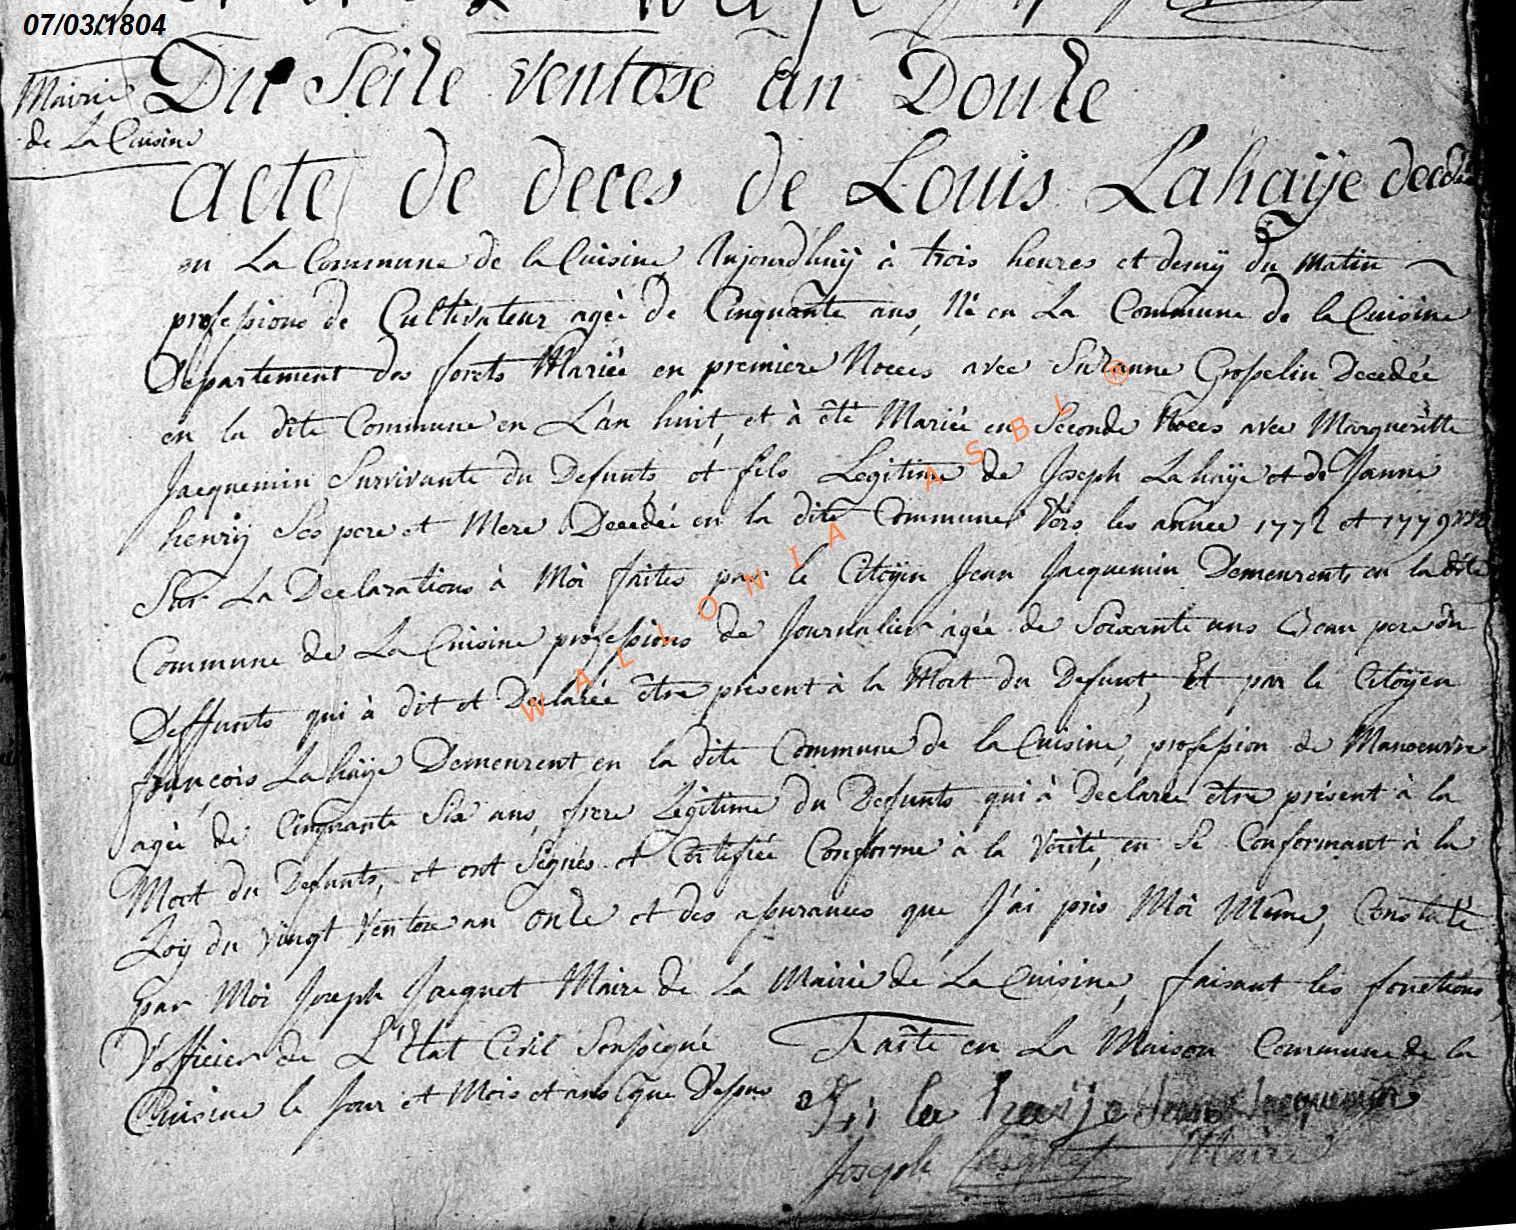 07/03/1804
Mairie
de La Cuisine
Du Seize ventose an Douze
acte de deces de Louis Lahaÿe decede
en La Commune de la Cuisine Aujourdhuÿ à trois heures et demÿ du matin
professions de Cultivateur agèé de Cinquante ans, Né en La Commune de la Cuisine
Departement des forets Mariée en premiere Noces avec Suzanne Grosselin Decedée
en la dite Commune en L'an huit, et à été Mariée en Seconde Noces avec Margueritte
Jacquemin Survivante du Defunts et fils Legitime de Joseph Lahaÿe et de Janne
henrÿ Ses pere et Mere Decedé en la dite Commune Vers les année 1772 et 1779
Sur La Declarations à Moi faites par le Citoÿen Jean Jacquemin Demeurent en la dite
Commune de La Cuisine professions de Journalier agée de Soixante ans Beau pere du
Deffunts qui à dit et Declarée être présent à la Mort du Defunt, Et par le Citoÿen
françois Lahaÿe Demeurent en la dite Commune de la Cuisine, profession de Manoeuvre
agée de Cinquante Six ans, frere Légitime du Defunts qui à Declarée être présent à la
Mort du Defunts, et ont Signés et Certifiée Conforme à la Vérité, en Se Conformant à la
Loÿ du vingt Ventose an onze et des assurances que J'ai pris Moi Même, Constaté
par Moi Joseph Jacquet Maire de La Mairie de La Cuisine, faisant les fonctions
D'officier de L'Etat Civil Soussigné Faite en La Maison Commune de la
Cuisine le Jour et Mois et ans que Dessus
la haije Jean Jacquemin
Joseph Jacquet Maire
WALLONIA ASBL ®